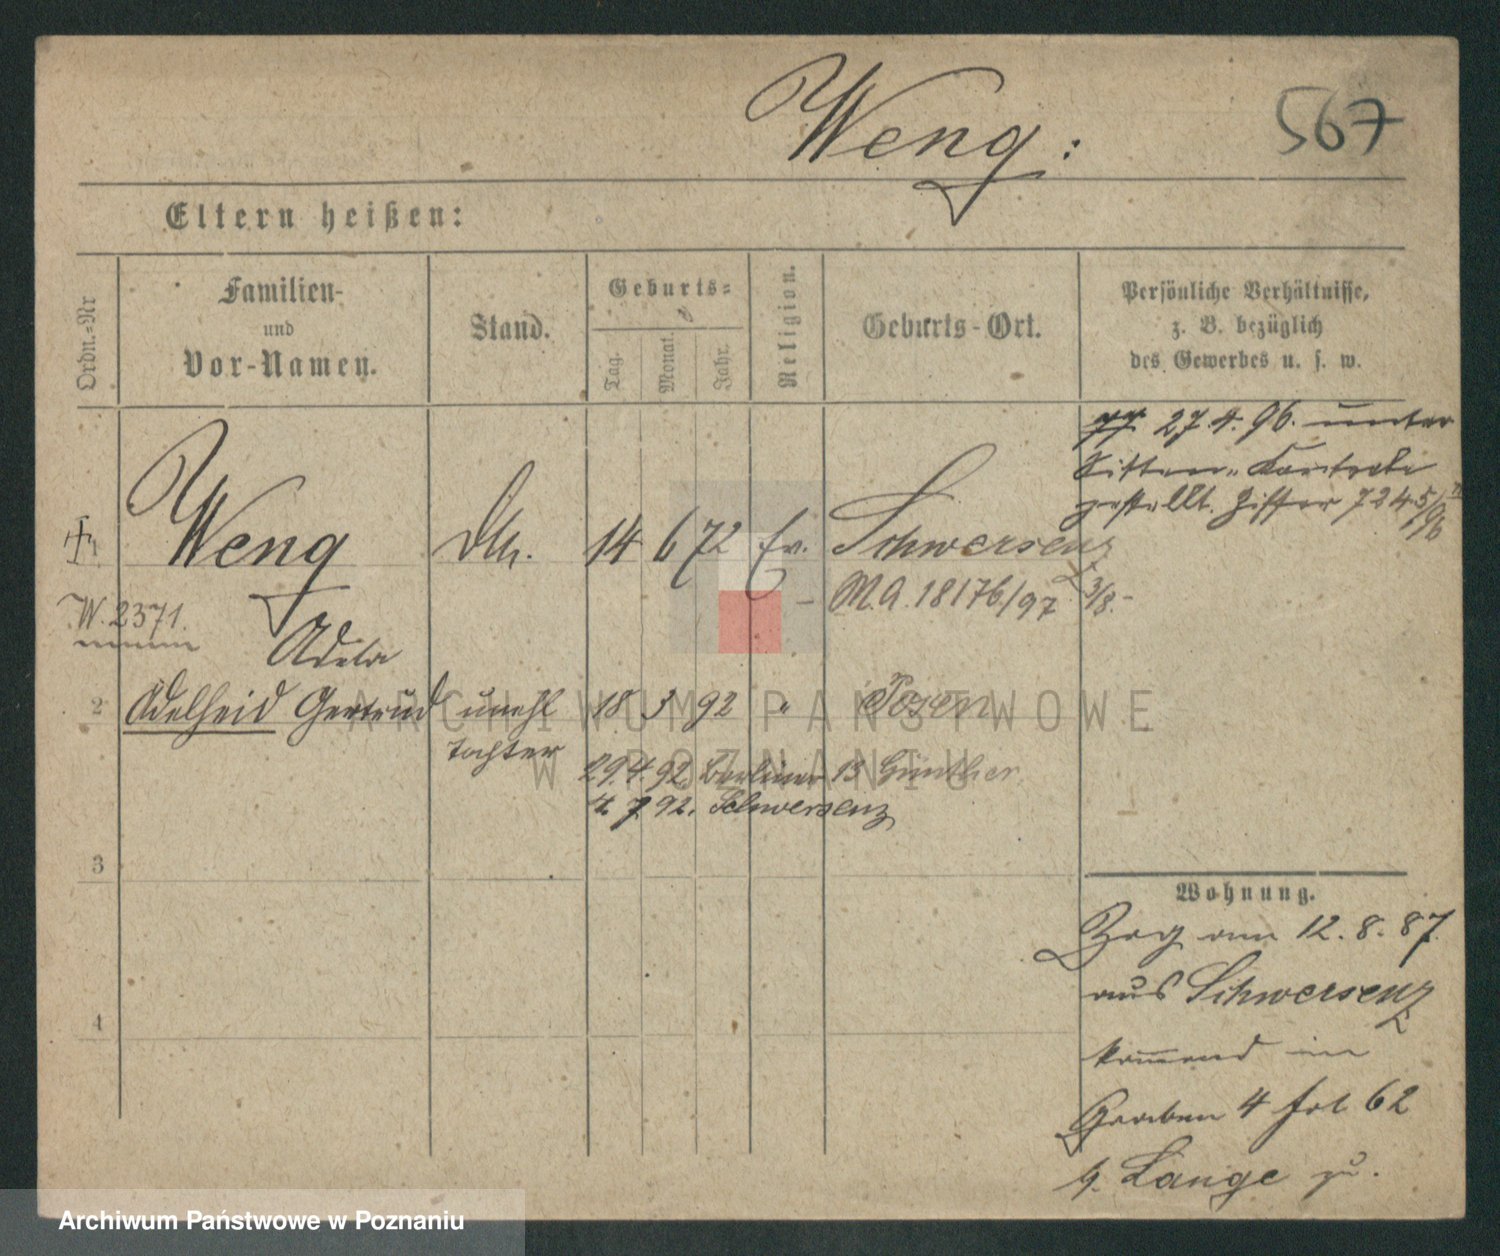 Weng:
567
Eltern heißen:
Ordn.=Nr
Familien-
und
Vor-Namen.
Stand.
Geburts=
Tag.
Monat.
Jahr.
Religion.
Geburts-Ort.
Persönliche Verhältnisse,
z. B. bezüglich
des Gewerbes u. s. w.
27.4.96. unter
Sitten-Kontrole
gestellt. Ziffer 7245/96
1 Weng 14 6 72 Ev. Schwersenz
M.A. 18176/97 3/8.-
W. 2371.
Adela
2 Adelheid Gertrud unehl 18 3 92 " Posen
Tochter
29.4.92. Berliner 13 Günther
4.7.92. Schwersenz
3
4
Wohnung.
Zog am 12.8.87.
aus Schwersenz
kommend im
Graben 4 fol 62
b. Lange zu.
ARCHIWUM PAŃSTWOWE
W POZNANIU
Archiwum Państwowe w Poznaniu